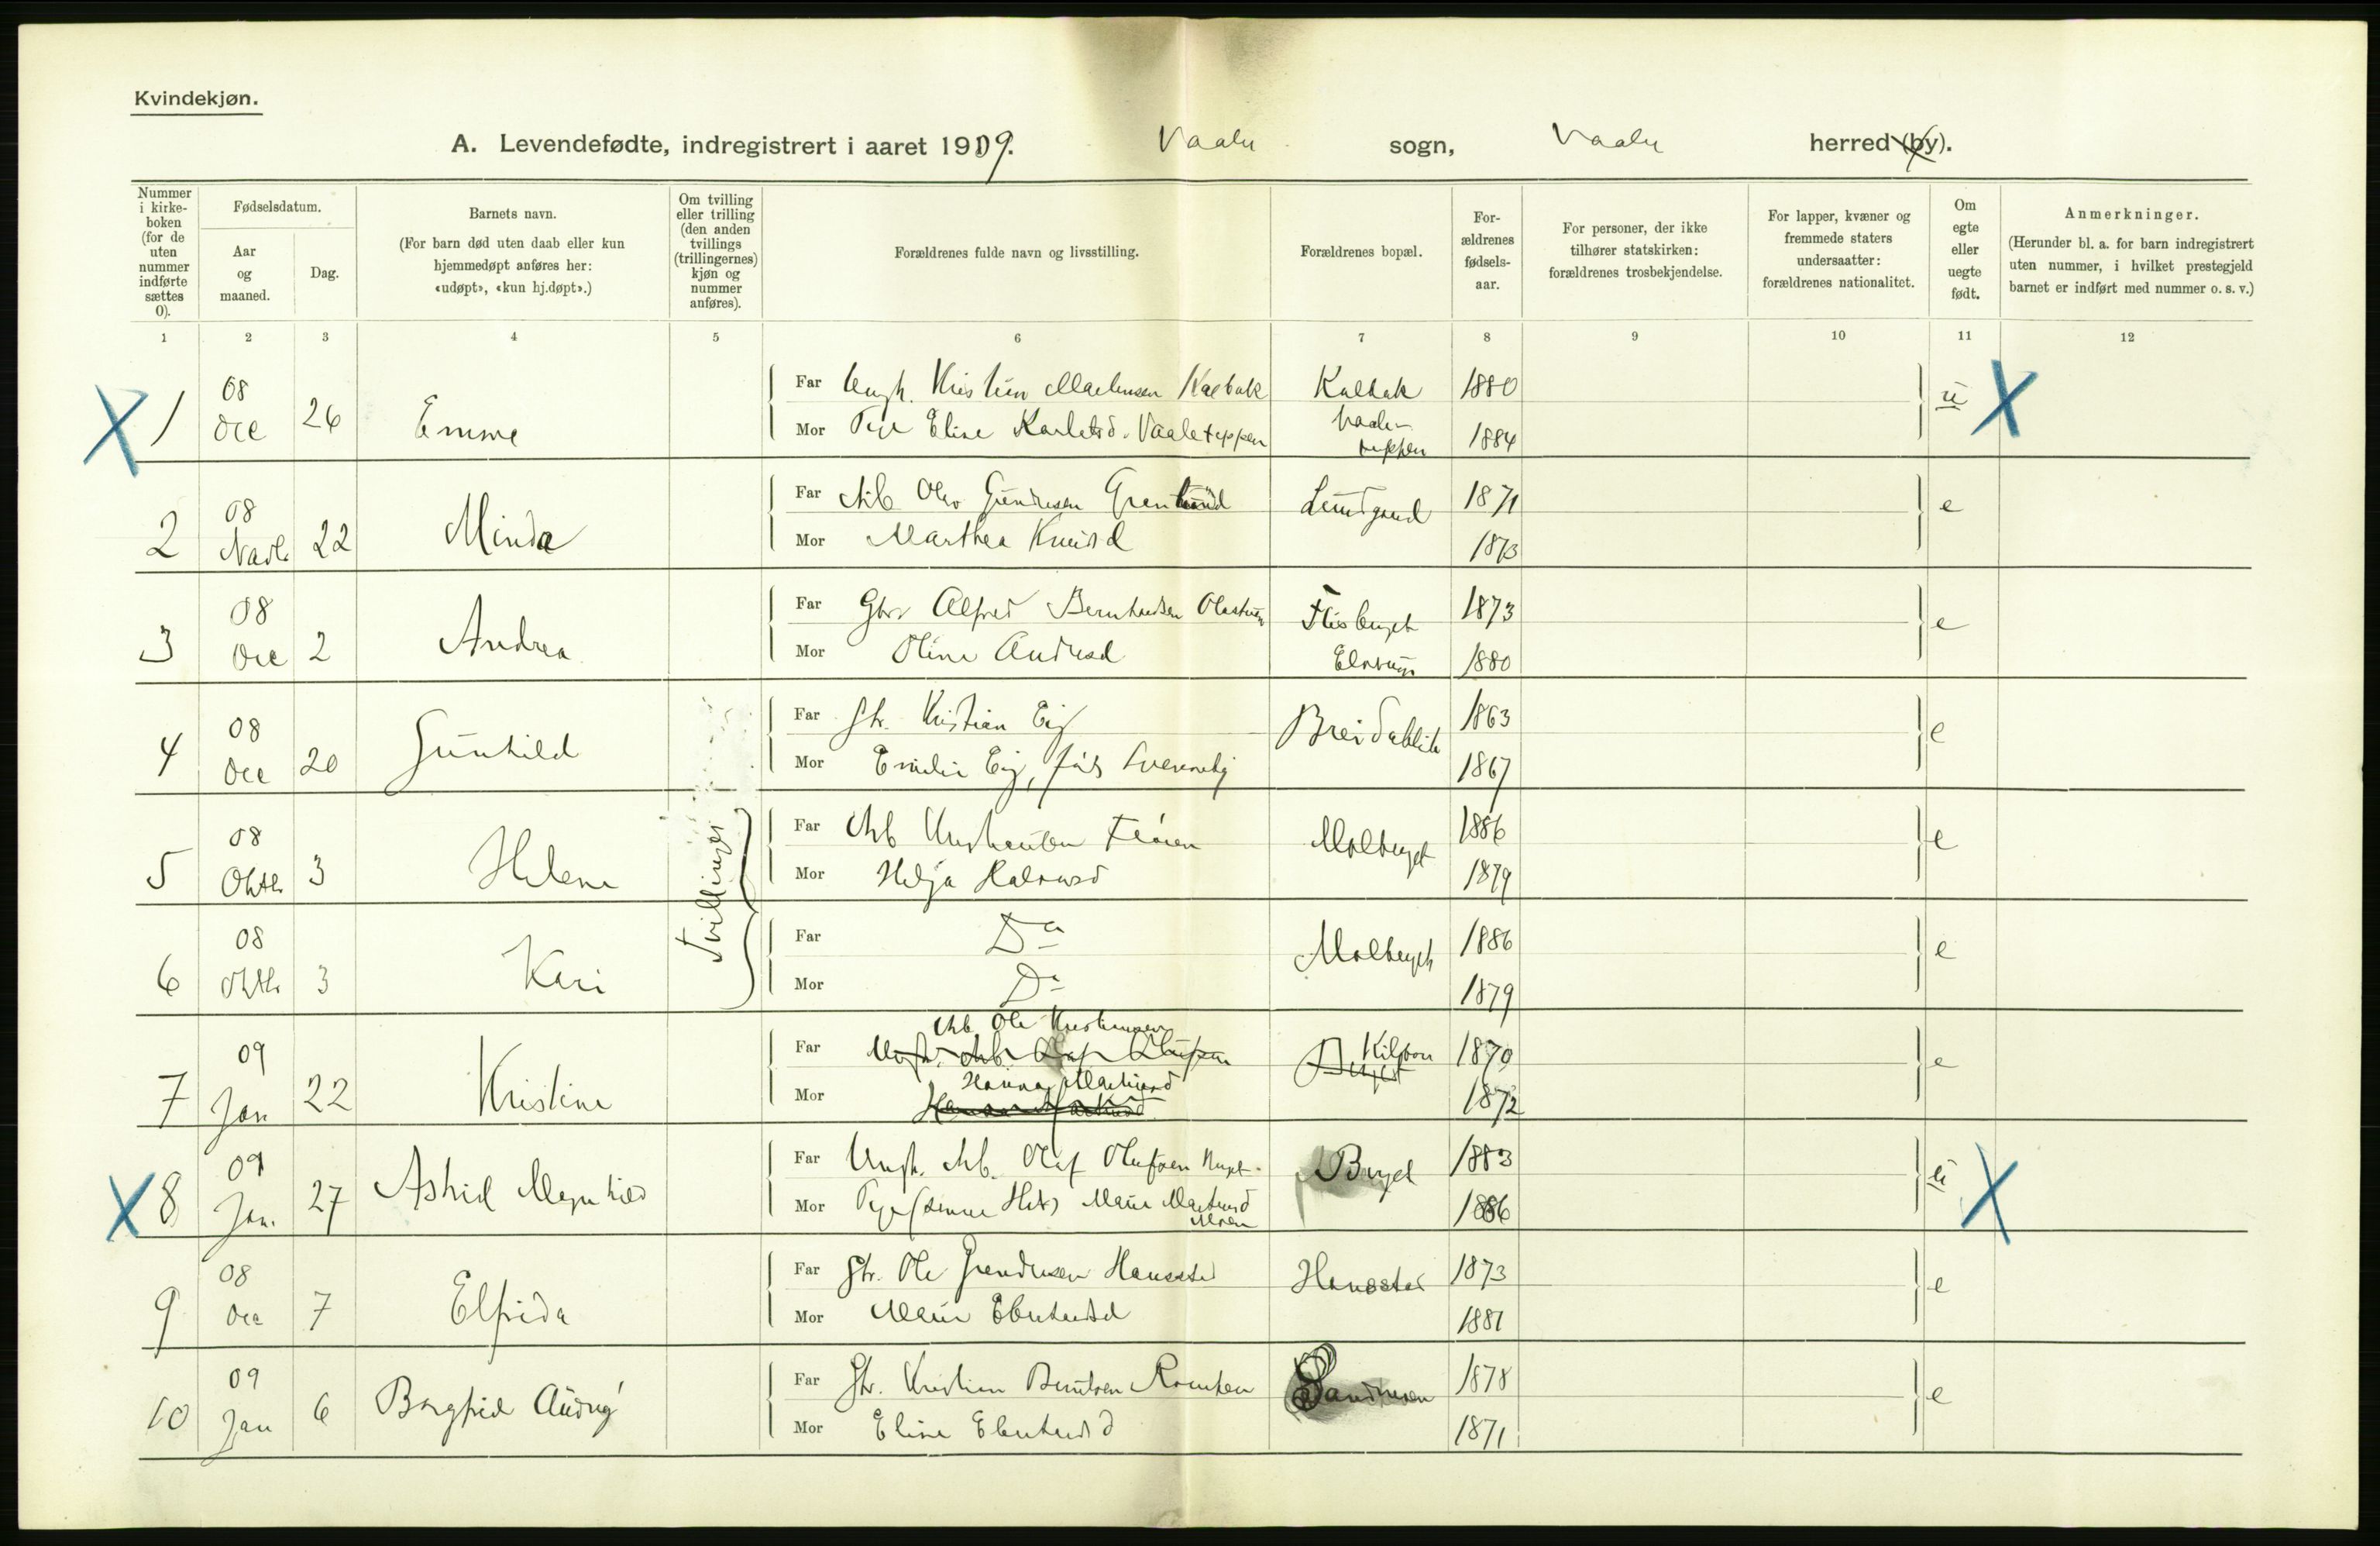 Kvindekjøn.
A. Levendefødte, indregistrert i aaret 1909. Vaaler sogn, Vaaler herred (by).
Nummer i kirke-boken (for de uten nummer indførte sættes 0).
Fødselsdatum.
Aar og maaned.
Dag.
Barnets navn.
(For barn død uten daab eller kun hjemmedøpt anføres her: «udøpt», «kun hj.døpt».)
Om tvilling eller trilling (den anden tvillings (trillingernes) kjøn og nummer anføres).
Forældrenes fulde navn og livsstilling.
Forældrenes bopæl.
For-ældrenes fødsels-aar.
For personer, der ikke tilhører statskirken: forældrenes trosbekjendelse.
For lapper, kvæner og fremmede staters undersaatter: forældrenes nationalitet.
Om egte eller uegte født.
Anmerkninger.
(Herunder bl. a. for barn indregistrert uten nummer, i hvilket prestegjeld barnet er indført med nummer o. s. v.)
1 2 3 4 5 6 7 8 9 10 11 12
X 1 08 Dec 26 Emma Far Ungk. Kristian Kalbak Kalbak 1880 u X
Mor Pige Eline Karlsd. Vaaleteppen Vaale-teppen 1884
2 08 22 Minda Far Arb Olav Gundersen 1871 e
Mor Marthea 1873
3 08 Dec 2 Andrea Far Gbr Alfred Flisberget 1873 e
Mor Oline Andersd Elverum 1880
4 08 Dec 20 Gunhild Far Gbr. Kristian Eig Breidablik 1863 e
Mor Emilie Eig, født 1867
5 08 Oktbr 3 Helene Tvillinger Far Arb Flöien Molberget 1886 e
Mor Helga Halvorsd 1879
6 08 Oktbr 3 Kari Far Do Molberget 1886 e
Mor Do 1879
7 09 Jan 22 Kristine Far Arb. Ole Kristiansen Berget 1870 e
Mor Hanna Martinsd 1872
X 8 09 Jan. 27 Astrid Magnhild Far Ungk. Arb. Olaf Olufsen Berget 1883 u X
Mor Pige Marie Martinsd Moen 1886
9 08 Dec 7 Elfrida Far Gbr. Ole Gundersen Hansstad Hansstad 1873 e
Mor Marie Eberhardsd 1881
10 09 Jan 6 Borghild Audny Far Gbr. Kristian Berntsen Sandmoen 1878 e
Mor Eline Eberhardsd 1871